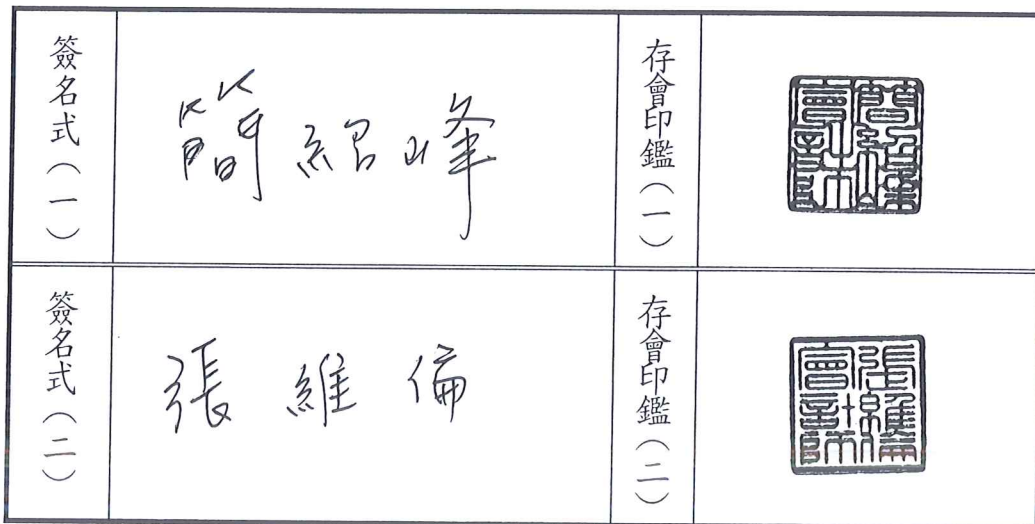 簽名式（一）
簡紹峰
存會印鑑（一）
簽名式（二）
張維倫
存會印鑑（二）
張維倫
會計師